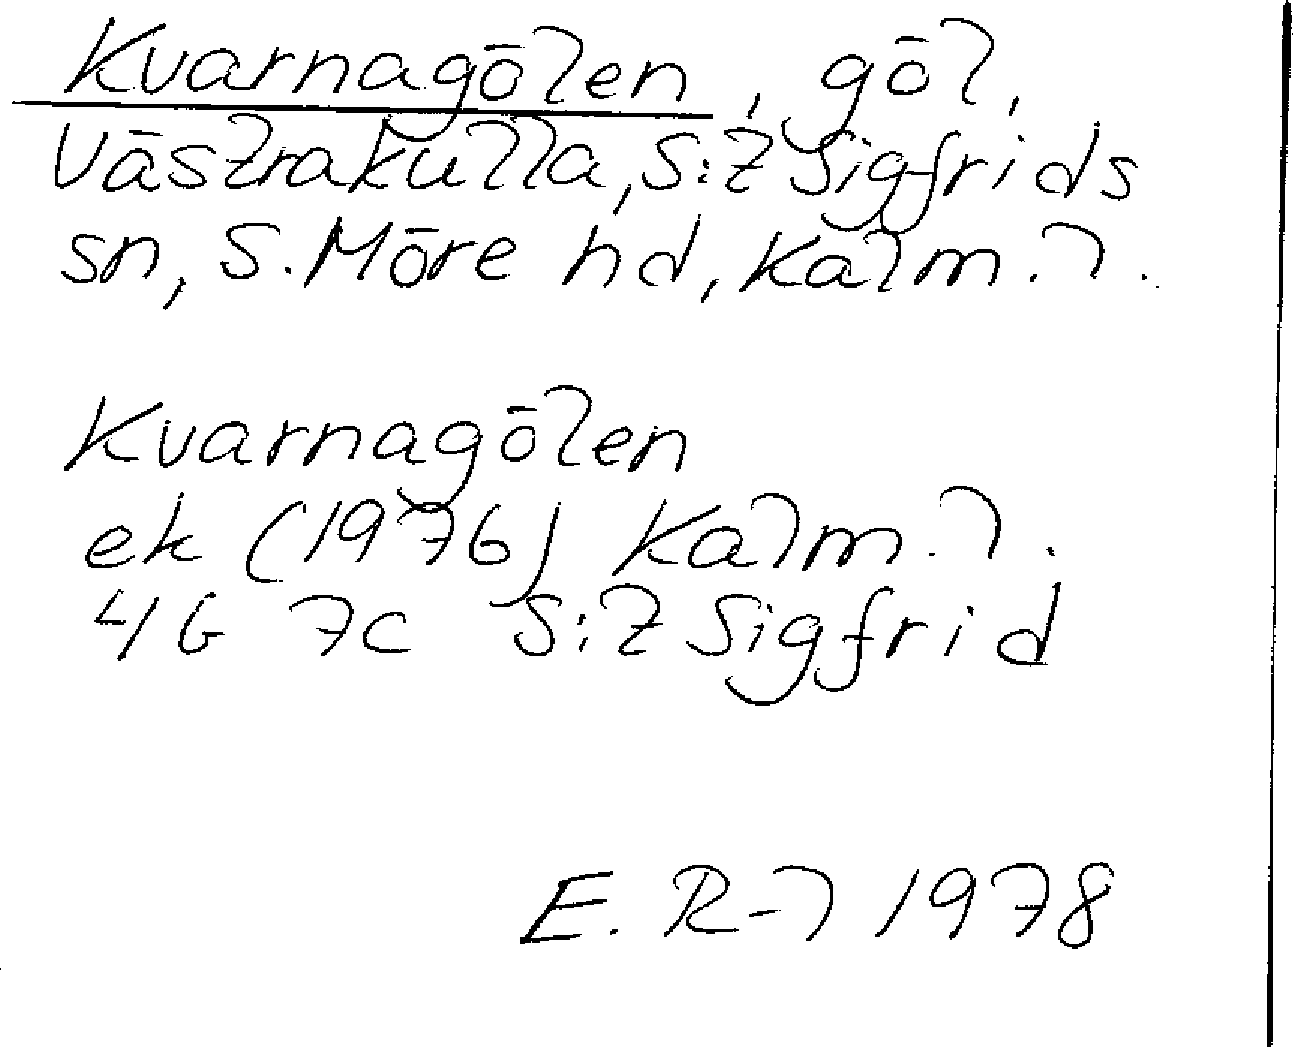 Kvarnagölen, göl,
Västrakulla, S:t Sigfrids
sn, S. Möre hd, Kalm. l.
Kvarnagölen
ek (1976) Kalm. l.
4G 7c S:t Sigfrid
E. R-l 1978